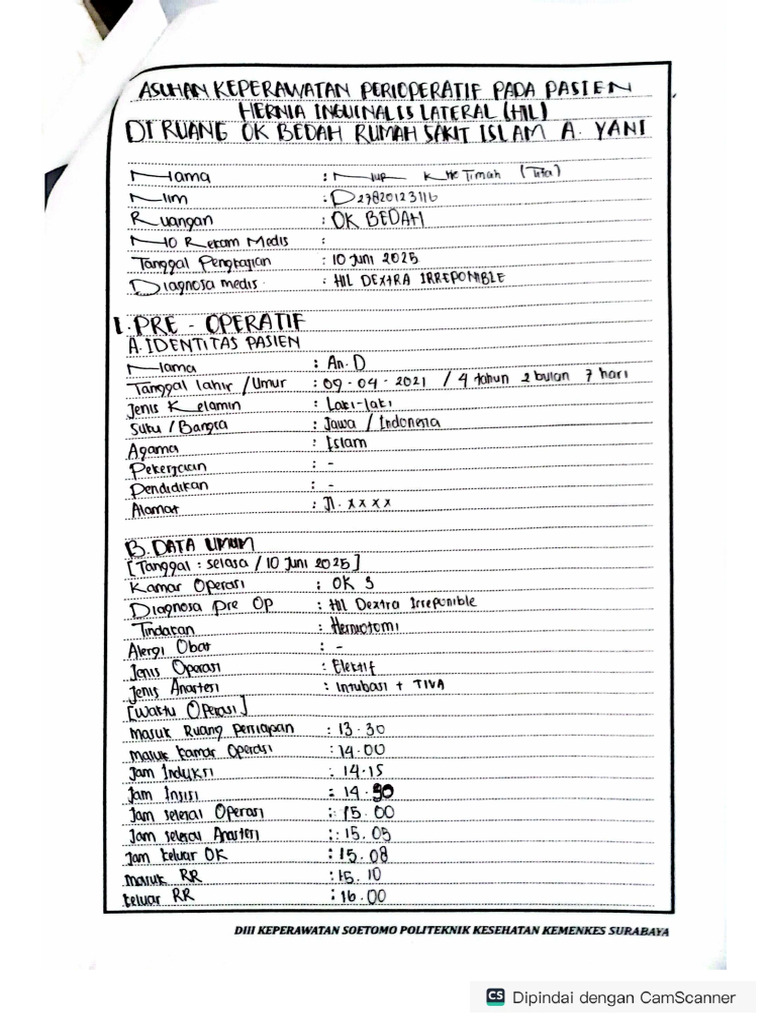 ASUHAN KEPERAWATAN PERIOPERATIF PADA PASIEN
HERNIA INGUINALIS LATERAL (HIL)
DI RUANG OK BEDAH RUMAH SAKIT ISLAM A. YANI
Nama : Nur Timah
Nim : D27820123116
Ruangan : OK BEDAH
No Rekam Medis :
Tanggal Pengkajian : 10 Juni 2025
Diagnosa medis : HIL DEXTRA IRREPONIBLE
I. PRE - OPERATIF
A. IDENTITAS PASIEN
Nama : An. D
Tanggal lahir / Umur : 09-04-2021 / 4 tahun 2 bulan 7 hari
Jenis Kelamin : Laki-laki
Suku / Bangsa : Jawa / Indonesia
Agama : Islam
Pekerjaan : -
Pendidikan : -
Alamat : Jl. xxxx
B. DATA UMUM
[Tanggal : selasa / 10 Juni 2025]
Kamar Operasi : OK 3
Diagnosa Pre Op : HIL Dextra Irreponible
Tindakan : Herniotomi
Alergi Obat : -
Jenis Operasi : Elektif
Jenis Anastesi : Intubasi + TIVA
[Waktu Operasi]
Masuk Ruang Persiapan : 13.30
masuk kamar Operasi : 14.00
Jam Induksi : 14.15
Jam Insisi : 14.30
Jam selesai Operasi : 15.00
Jam selesai Anastesi : 15.05
Jam keluar OK : 15.08
masuk RR : 15.10
keluar RR : 16.00
DIII KEPERAWATAN SOETOMO POLITEKNIK KESEHATAN KEMENKES SURABAYA
CS Dipindai dengan CamScanner